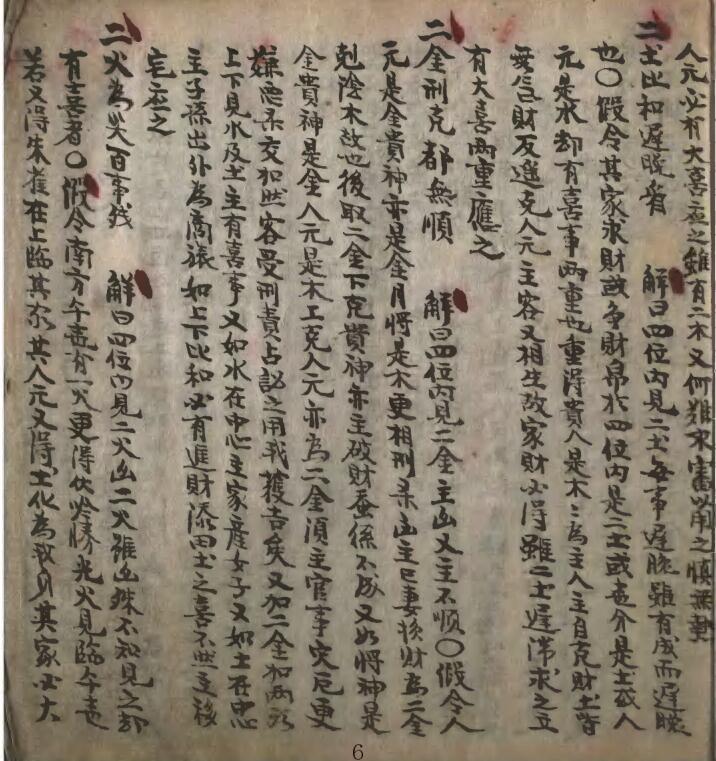 人元必有大喜应之雖有二木又何難求審以用之慎無重
二土比和遲晚看　解曰四位內見二土每事遲晚雖有成而遲晚
也〇假令其家求財或爭財帛於四位內是二土或壹介是土或人
元是水却有喜事兩重也重得貴人是木木為主人主自克財土皆
無气財反逢克人元主客又相生故家財必得雖二土遲滯求之立
有大喜兩重應之
二金刑克都無順　解曰四位內見二金主凶又主不順〇假令人
元是金貴神亦是金月將是木更相刑杀凶主已妻损財為二金
剋陰木故也後取二金下克貴神亦主破財蚕係不成又如將神是
金貴神是金人元是木上克人元亦為二金湏主官事灾厄更
嫌恶杀交加然客受刑責占訟之用我獲吉矣又加二金加兩
上下見水及土主有喜事又如水在中心主家產女子又如土在中心
主子孫出外為商旅如上下比和必有進財添田土之喜不然主移
宅应之
二火為灾百事残　解曰四位內見二火凶二火雖凶殊不知見之却
有喜者〇假令南方午壹有一火更得伏吟勝光火見臨午壹
若又得朱雀在上臨其家其人元又得土化為我身其家必大
6